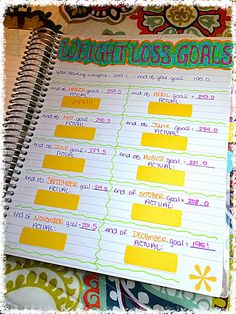 WEIGHT LOSS GOALS
your starting weight - 259.1 end of year goal - 195.0
end of MARCH goal = 253.5
ACTUAL:
end of APRIL goal = 247.0
ACTUAL:
end of MAY goal = 240.5
ACTUAL:
end of June goal = 234.0
ACTUAL:
end of JULY goal = 227.5
ACTUAL:
end of AUGUST goal = 221.0
ACTUAL:
end of SEPTEMBER goal = 214.5
ACTUAL:
end of OCTOBER goal = 208.0
ACTUAL:
end of NOVEMBER goal = 201.5
ACTUAL:
end of DECEMBER goal = 195!
ACTUAL: